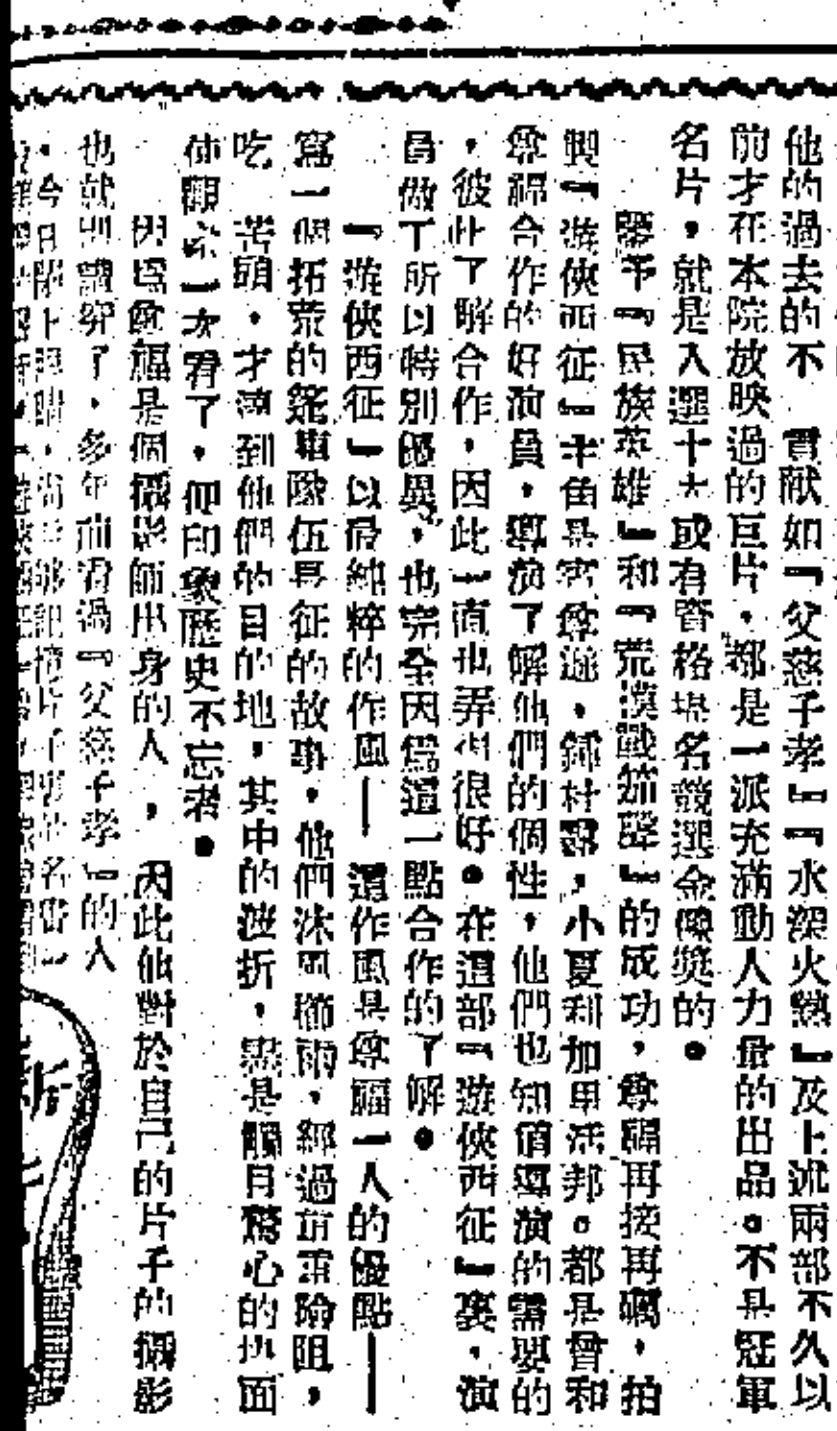 他的過去的不　貢献如『父慈子孝』『水深火熱』及上流兩部不久以
前才在本院放映過的巨片，都是一派充滿動人力量的出品。不是冠軍
名片，就是入選十大或有資格提名競選金像獎的。
鑒于『民族英雄』和『荒漠戰笳聲』的成功，尊福再接再礪，拍
製『游俠西征』主角是賓尊遜，鍾村露，小夏利加里活邦。都是曾和
尊福合作的好演員，導演了解他們的個性，他們也知道導演的需要的
，彼此了解合作，因此一直也弄得很好。在這部『遊俠西征』裏，演
員做了所以特別優異，也完全因爲這一點合作的了解。
『遊俠西征』以最純粹的作風——這作風是尊福一人的優點——
寫一個拓荒的篷車隊伍長征的故事，他們沐風櫛雨，經過重重險阻，
吃　苦頭，才達到他們的目的地，其中的波折，點是觸目驚心的場面
使觀衆一次看了，印象歷史不忘者。
因爲尊福是個攝影師出身的人，因此他對於自己的片子的攝影
也就別講究了，多年前看過『父慈子孝』的人
，今日閉上眼睛，尚能够記憶片子裏的名